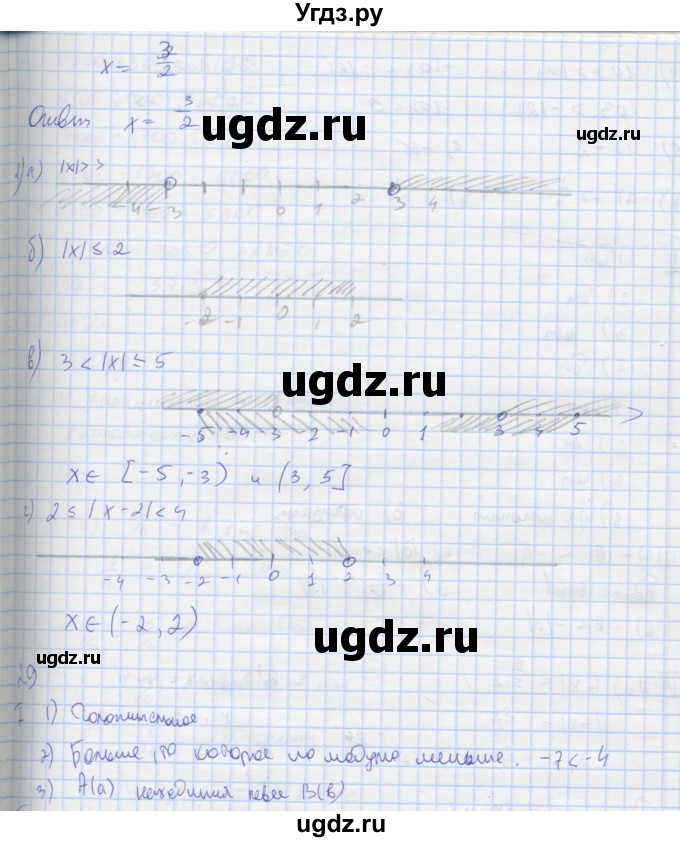 Угдз.ру
x = 3/2
Ответ x = 3/2
ugdz.ru
1) а) |x| > 3
-4 -3 0 1 2 3 4
б) |x| ≤ 2
-2 -1 0 1 2
ugdz.ru
в) 3 < |x| ≤ 5
-5 -4 -3 -2 -1 0 1 3 4 5
ugdz.ru
x ∈ [-5, -3) и (3, 5]
г) 2 ≤ |x - 2| < 4
-4 -3 -2 -1 0 1 2 3 4
x ∈ (-2, 2)
ugdz.ru
gdz.ru
29
I 1) Положительное
2) Больше, то которое по модулю меньше. -7 < -4
3) A(a) находится левее B(b)
ugdz.ru